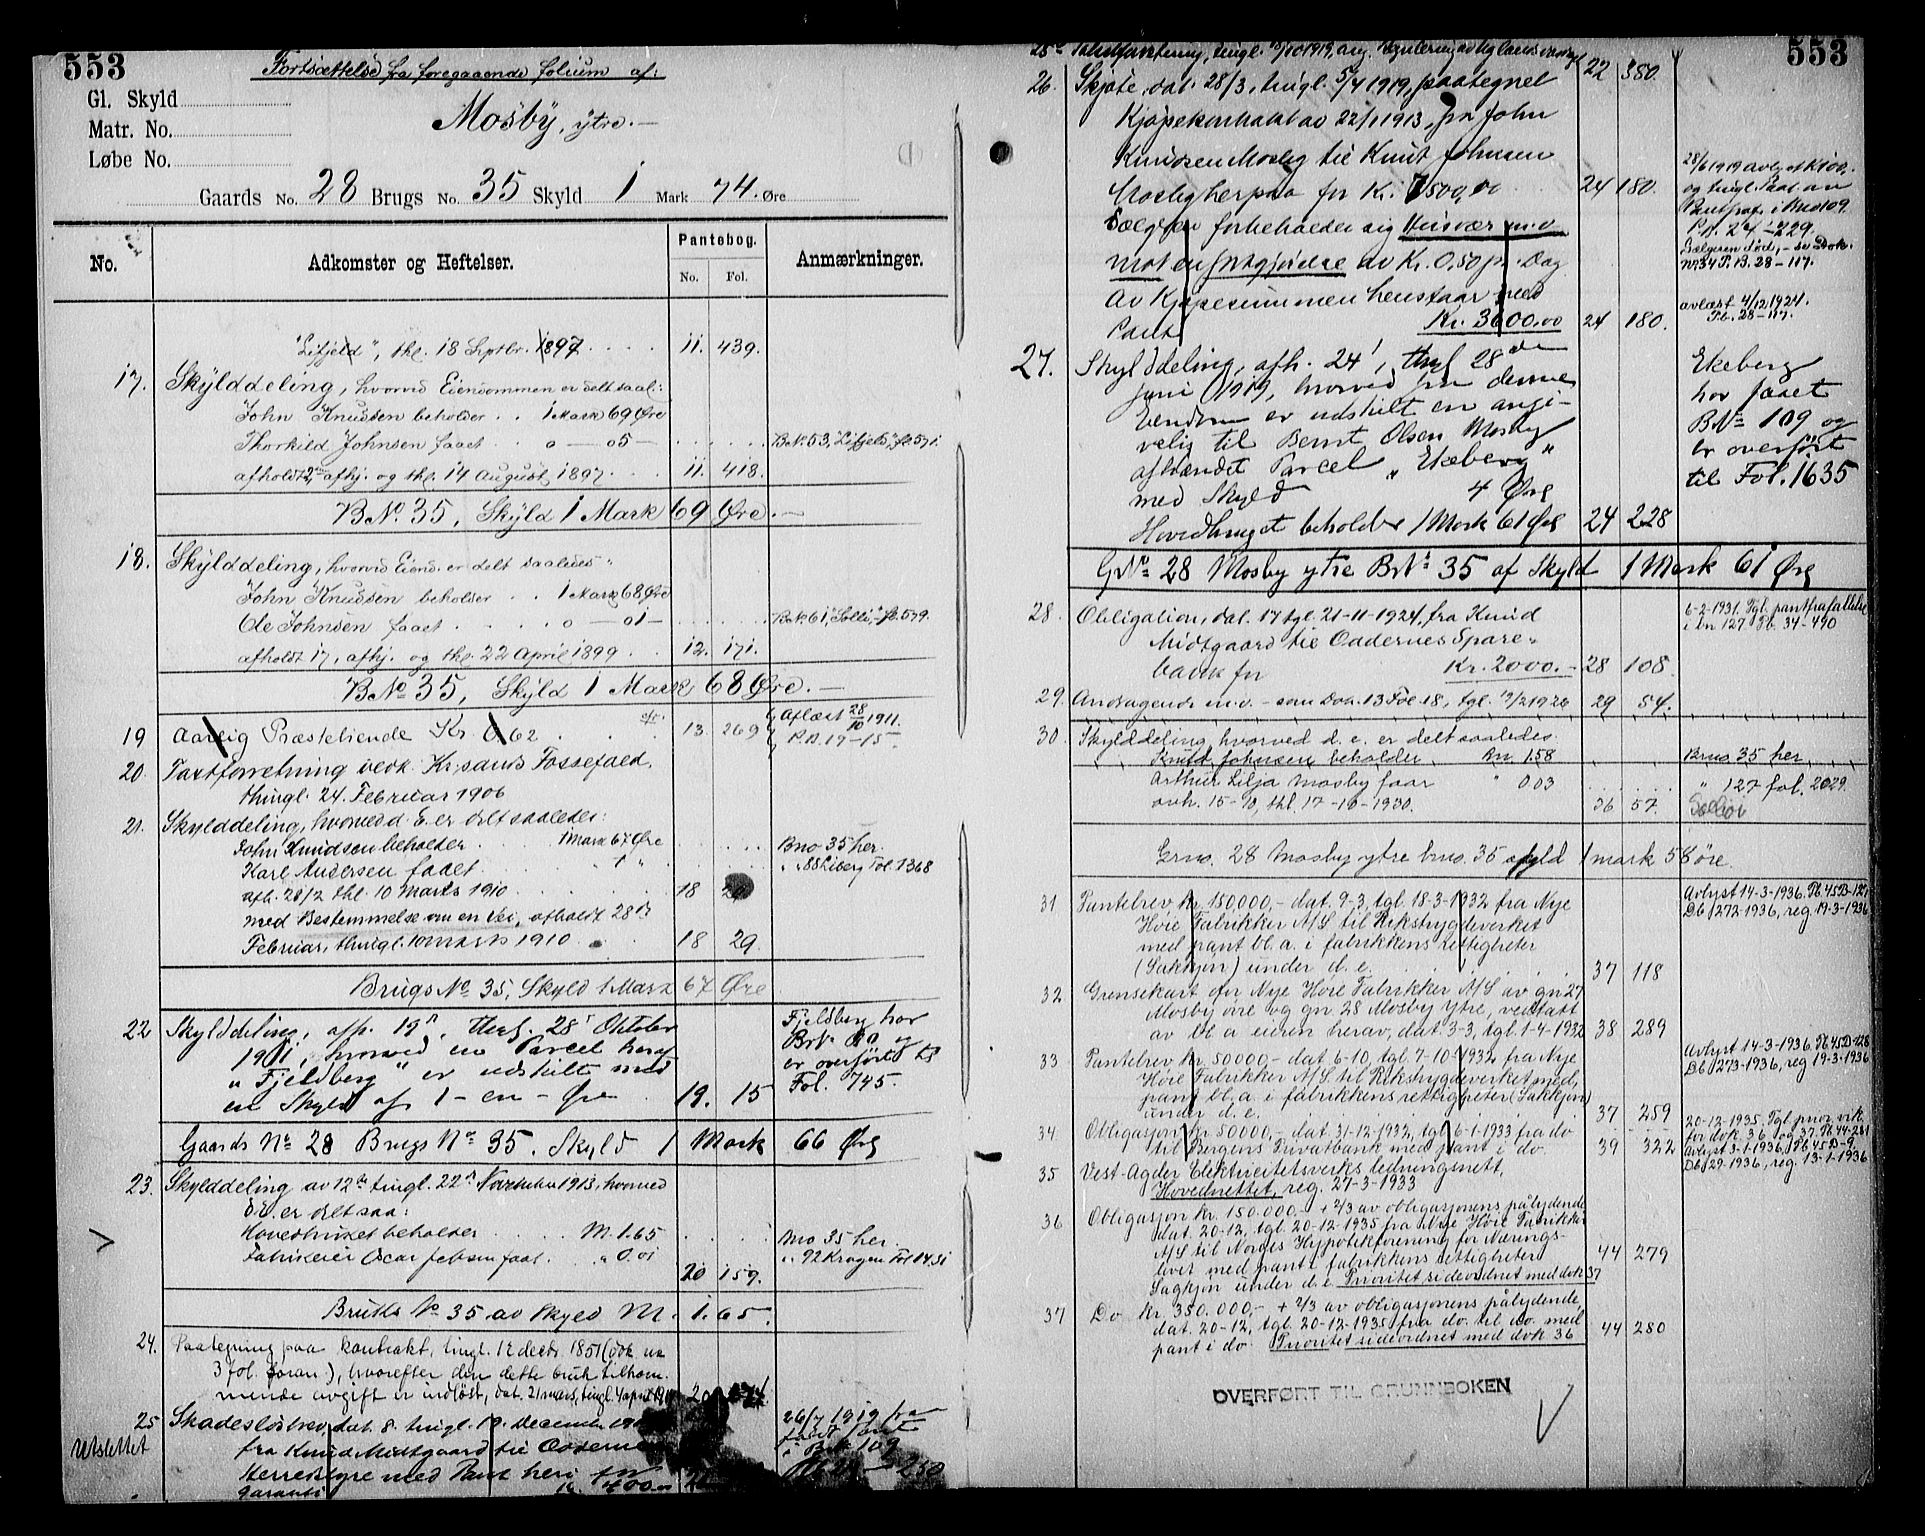 553
Fortsættelse fra foregaaende folium af:
Gl. Skyld
Matr. No.
Løbe No.
Mosby, ytre.
Gaards No. 28 Brugs No. 35 Skyld 1 Mark 74. Øre
No. Adkomster og Heftelser. Pantebog. No. Fol. Anmærkninger.
"Lifjeld", thl. 18 Septbr. 1897 11. 439.
17. Skylddeling, hvorved Eiendommen er delt saal:
John Knudsen beholder 1 Mark 69 Øre
Thorkild Johnsen faaet o — 05 — B.No. 53, "Lifjeld", fo 571.
afholdt 2, afhj. og thl. 14 August 1897. 11. 418.
BNo. 35, Skyld 1 Mark 69 Øre.
18. Skylddeling, hvorved Eiend. er delt saaledes:
John Knudsen beholder 1 Mark 68 Øre
Ole Johnsen faaet o — 01 — B.No. 61, "Solli", fo 579.
afholdt 17, afhj. og thl. 22 April 1899 12. 171.
BNo. 35, Skyld 1 Mark 68 Øre.
19 Aarlig Præstetiende Kr 0,62 13. 269 Aflæst 28/10 1911. P.B. 19-15.
20. Taxtforretning vedk. Kr.sands Fossefald,
thingl. 24. Februar 1906
21. Skylddeling, hvorved d. E. er delt saaledes:
John Knudsen beholder 1 Mark 67 Øre Bno 35 her.
Karl Andersen faaet 1 " " 88 Liberg Fol. 1368
afh. 28/2 thl. 10 Marts 1910 18
med Bestemmelse om en Vei, afholdt 28
Februar, thingl. 10 marts 1910 18 29.
Brugs No. 35, Skyld 1 Mark 67 Øre
22 Skylddeling, afh. 19, thgl. 28 Oktober
1911, hvorved en Parcel heraf
"Fjeldberg" er udskilt med
en Skyld af 1 - en - Øre 19. 15
Fjeldberg har
BrNo 90 og
er overført til
Fol. 745.
Gaards No 28 Brugs No 35. Skyld 1 Mark 66 Øre
23. Skylddeling av 12te tingl. 22 November 1913, hvorved
d.e. er delt saa:
Hovedbruket beholder M. 1.65 Bno 35 her.
Fabrikeier Oscar Jebsen faat " 0.01 " 92 Kragen Fol 1451
20 159.
Bruks No 35 av Skyld M. 1.65.
24. Paategning paa kontrakt, tingl. 12 decbr. 1851 (dok no
3 fol. foran), hvorefter den dette bruk tilkom-
mende avgift er indløst, dat. 21 mars, tingl. 4 april 20
25 Skadesløsbrev, dat. 8. tingl. 19. December
Utslettet
fra Knud Midtgaard til Oddernes
Herredstyre med Pant heri for
garanti 400
26/7 1919 fra
faldt Pant
i Br 109
250
553
26. Skjøte, dat. 28/3, tingl. 5/4 1919, paategnet 22 380.
Kjøpekontrakt av 22/1 1913, fra John
Knudsen Mosby til Knut Johnsen
Mosby herpaa for Kr. 7500,00 24 180.
28/6 1919 avlyst Kr 100,
og tingl. Pant av
Pantfraf. i Bno 109.
P.B. 24-229.
Sælgeren død, - se Dok.
Nr. 34 P.B. 28-117.
Sælgeren forbeholder sig Husvær m.v
mot en godtgjørelse av Kr. 0,50 pr. Dag
Av Kjøpesummen henstaar med
Pant Kr. 3600,00 24 180.
avlæst 4/12 1924.
P.b. 28-117.
27. Skylddeling, afh. 24, thgl 28de
Juni 1919, hvorved fra denne
Eiendom er udskilt en angi-
velig til Bernt Olsen Mosby
afhændet Parcel "Ekeberg"
med Skyld 4 Øre
Hovedbruget beholder 1 Mark 61 Øre 24 228
Ekeberg
har faaet
BNo 109 og
er overført
til Fol. 1635
GNo 28 Mosby ytre BrNo 35 af Skyld 1 Mark 61 Øre
28. Obligation, dat. 17 tgl. 21-11-1924, fra Knud
Midtgaard til Oddernes Spare-
bank for Kr. 2000.- 28 108.
6-2-1931. Tgl. pantfrafallelse
i bn 127 Pb. 34-490
29. Andragende m.v. - som Dok. 13 Fol 18, tgl. 19/2 1926 29 54.
30. Skylddeling hvorved d. e. er delt saaledes
Knud Johnsen beholder M 1.58 Bruno. 35 her
Arthur Lilja Mosby faar " 0 03 " 127 fol. 2029.
avh. 15-10, thl. 17-10-1930. 36 57.
Grno. 28 Mosby ytre bno. 35 skyld 1 mark 58 øre.
31 Pantebrev kr 150000,- dat. 9-3, tgl. 18-3-1932 fra Nye
Høie Fabrikker A/S til Rikstrygdeverket
med pant bl. a. i fabrikkens rettigheter
(Sakkjøn) under d. e. 37 118
Avlyst 14-3-1936. Pb. 45B-127
Db 1272-1936, reg. 19-3-1936
32 Grensekart for Nye Høie Fabrikker A/S av gn 27
Mosby øvre og gn 28 Mosby Ytre, vedtatt
av bl a eieren herav, dat 3-3, tgl. 1-4 1932 38 289
33 Pantebrev kr 50000 - dat. 6-10, tgl. 7-10-1932 fra Nye
Høie Fabrikker A/S til Rikstrygdeverket med
pant bl. a i fabrikkens rettigheter (Sakkjøn)
under d. e. 37 259
Avlyst 14-3-1936. Pb. 45B-128
Db 1273-1936, reg 19-3-1936
34 Obligasjon kr 50000,- dat 31-12-1932, tgl 6-1-1933 fra do
til Bergens Privatbank med pant i do. 39 322
20-12-1935. Tgl prior. vik.
for dok. 36 og 37. Pb. 44-281
Avlyst 3-1-1936, Pb. 45B-9
Db 129-1936, reg. 13-1-1936
35 Vest-Agder Elektricitetsverks ledningsnett,
Hovednettet, reg. 27-3-1933
36 Obligasjon kr. 150.000,- + 2/3 av obligasjonens pålydende
dat. 20-12, tgl. 20-12-1935 fra Nye Høie Fabrikker
A/S til Norges Hypotekforening for Nærings-
livet med pant i fabrikkens rettigheter 44 279
Sagkjøn under d. e. Prioritet sideordnet med dok 37
37 Do kr. 350.000,- + 2/3 av obligasjonens pålydende,
dat. 20-12, tgl. 20-12-1935 fra do. til do. med
pant i do. Prioritet sideordnet med dok 36 44 280
OVERFØRT TIL GRUNNBOKEN